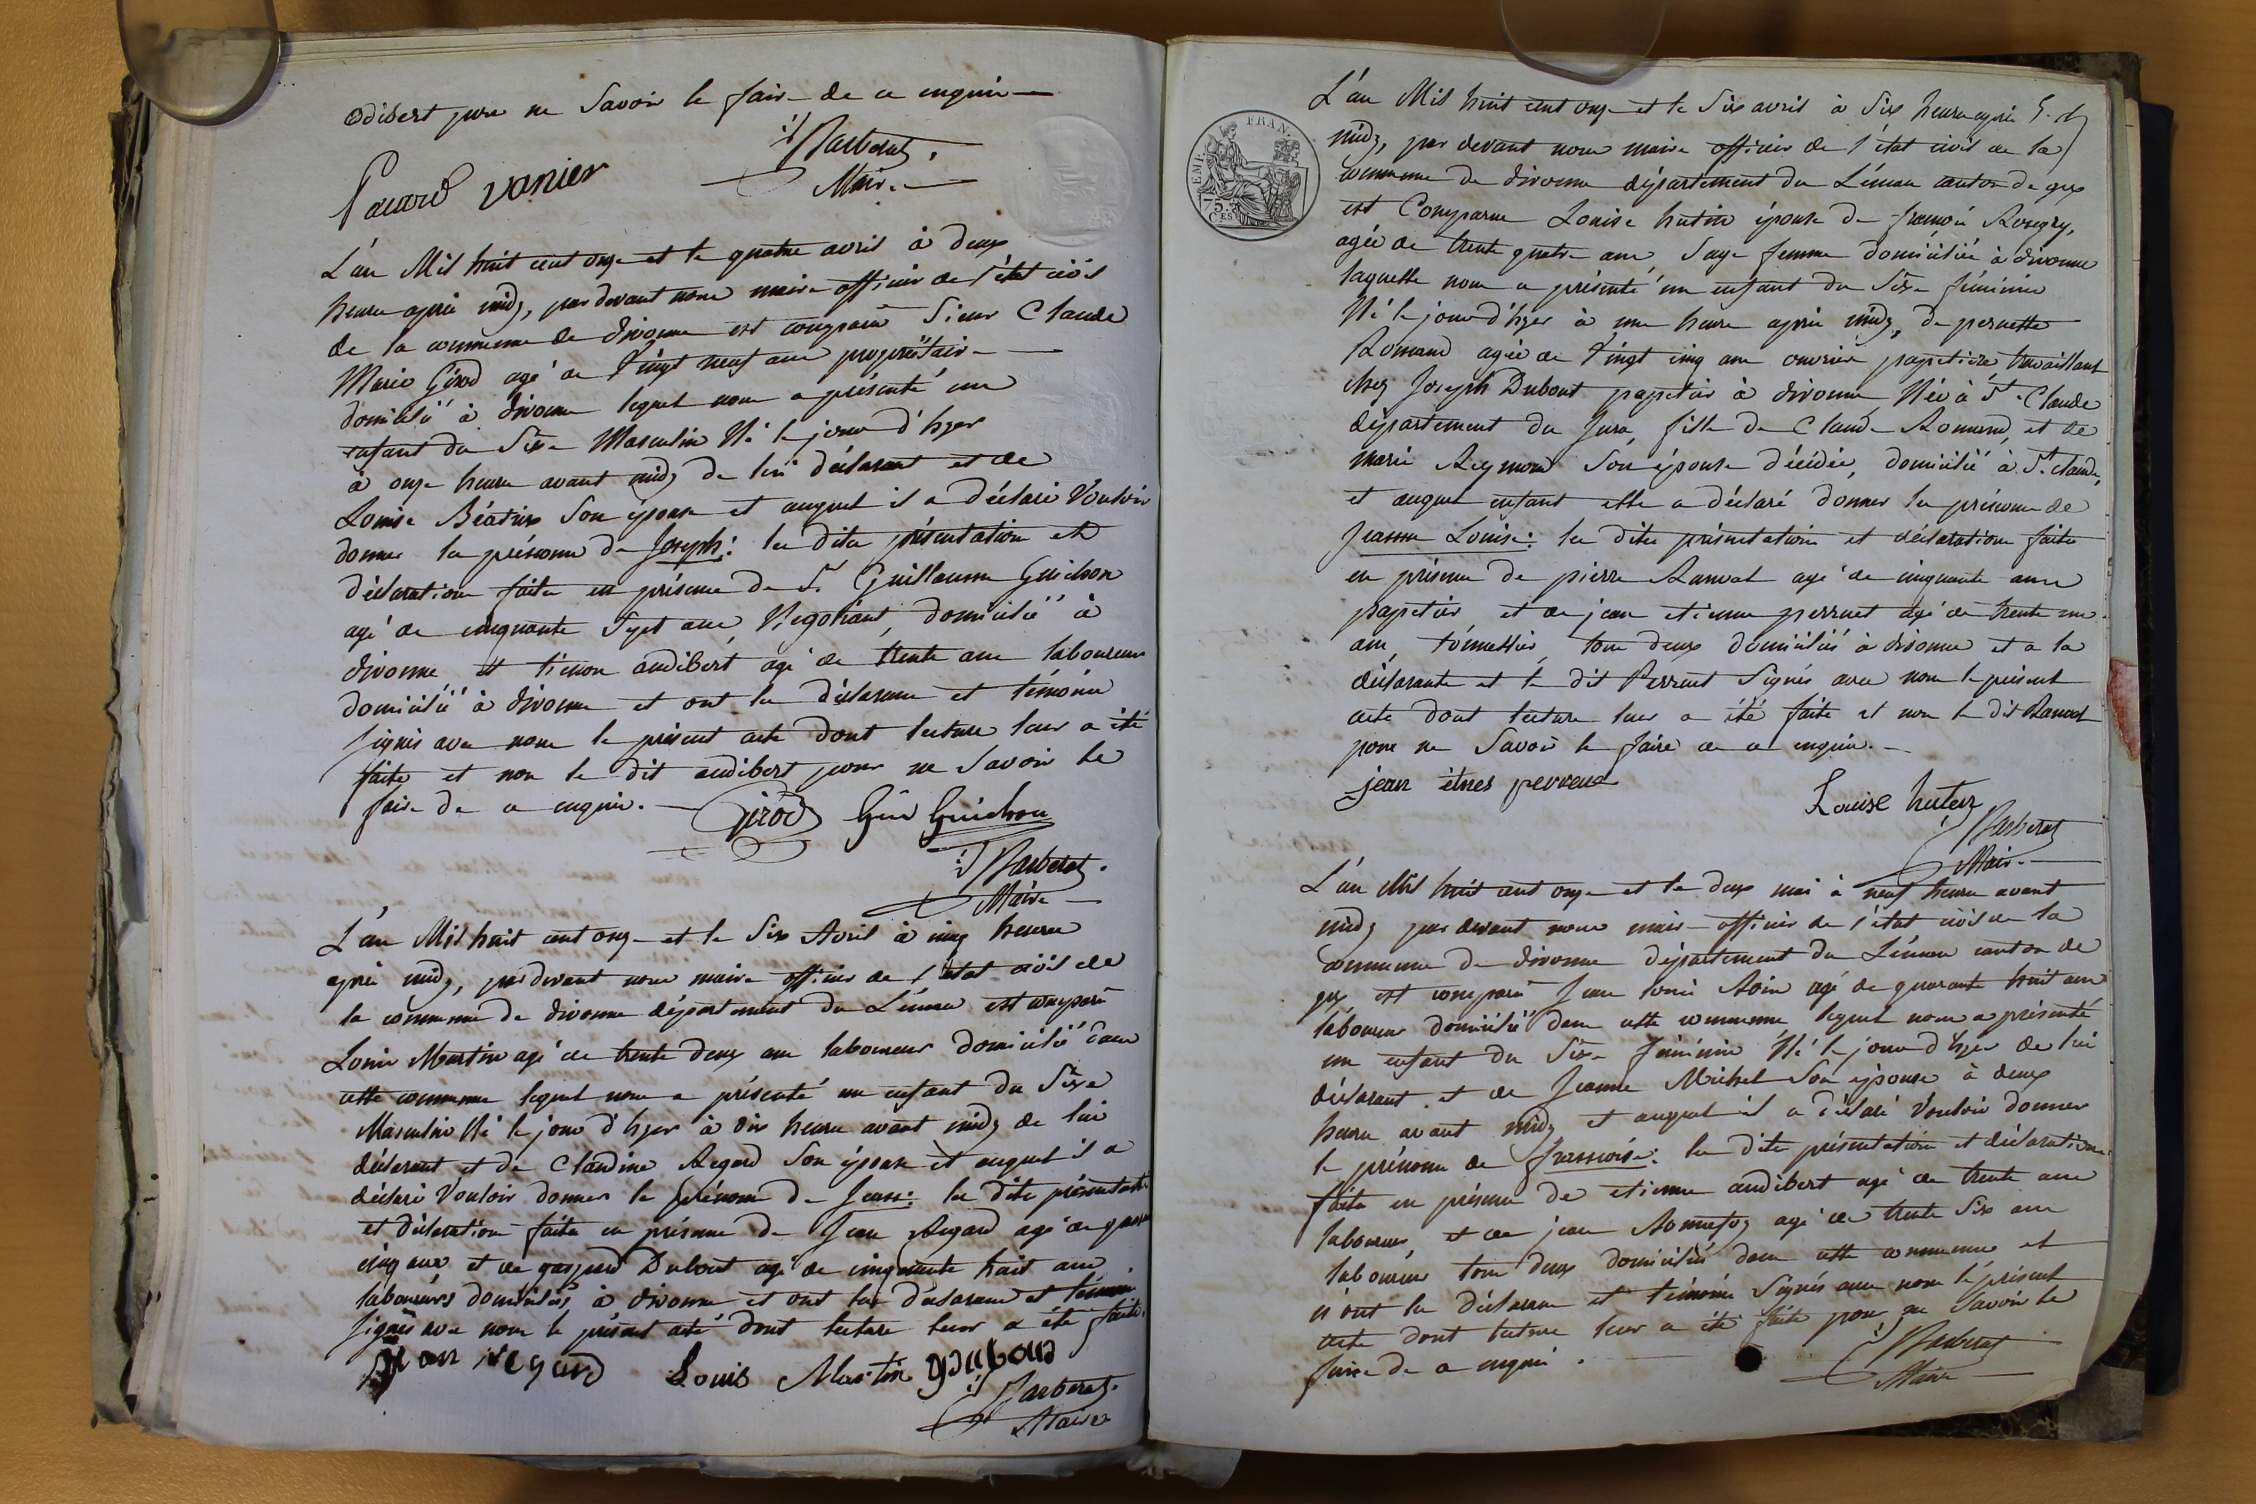 audibert pour ne Savoir le faire de ce enquis
Barberat
Maire
Pauard vanier
L'an Mil huit cent onze et le quatre avril à deux
heures après midy, par devant nous maire officier de l'état civil
de la commune de divonne est comparu Sieur Claude
Marie Girod agé de Vingt neuf ans propriétaire
domicilié à divonne lequel nous a présenté un
enfant du Sèxe Masculin Né le jour d'hyer
à onze heures avant midy de lui déclarant et de
Louise Béatrix Son épouse et auquel il a déclaré Vouloir
donner les prénoms de Joseph: les dites présentation et
déclaration faites en présence de S. Guillaume Guichon
agé de cinquante Sept ans, Negotiant, domicilié à
divonne et tienne audibert agé de trente ans laboureur
domicilié à divonne et ont les déclarans et témoins
signés avec nous le présent acte dont lecture leur a été
faite et non le dit audibert pour ne Savoir le
faire de ce enquis.
Girod Gme Guichon
Barberat
Maire
L'an Mil huit cent onze et le Six Avril à cinq heures
après midy, par devant nous maire officier de l'état civil de
la commune de divonne département du Léman est comparu
Louis Martin agé de trente deux ans laboureur domicilié dans
cette commune lequel nous a présenté un enfant du Sèxe
Masculin Né le jour d'hyer à dix heures avant midy de lui
déclarant et de Claudine Regard Son épouse et auquel il a
déclaré Vouloir donner le prénom de Jean: les dites présentation
et déclaration faites en présence de Jean Regard agé de
cinq ans et de gaspard Dubout agé de cinquante huit ans
laboureurs domiciliés à divonne et ont les déclarans et témoins
signés avec nous le présent acte dont lecture leur a été faite.
Jean Regard Louis Martin
Barberat
Maire
EMP. FRAN.
75.
CES
L'an Mil huit cent onze et le Six avril à Six heures après
midy, par devant nous maire officier de l'état civil de la
commune de divonne département du Léman canton de gex
est Comparue Louise hutin épouse de françois Rougey,
agée de trente quatre ans Sage femme domiciliée à divonne
laquelle nous a présenté un enfant du Sèxe féminin
Né le jour d'hyer à une heure après midy, de pernette
Romand agée de Vingt cinq ans ouvrière papetière travaillant
chez Joseph Dubout papetier à divonne Née à St. Claude
département du Jura, fille de Claude Romand, et de
marie Reymond Son épouse décédée, domicilié à St. claude,
et auquel enfant elle a déclaré donner les prénoms de
Jeanne Louise: les dites présentation et déclaration faites
en présence de pierre Ranvot agé de cinquante ans
papetier et de jean etienne perrout agé de trente un
ans, tous deux domiciliés à divonne et a la
déclarante et le dit Perrout Signés avec nous le présent
acte dont lecture leur a été faite et non le dit Ranvot
pour ne Savoir le faire de ce enquis.
jean
Louise huten
Barberat
Maire
L'an Mil huit cent onze et le deux mai à neuf heures avant
midy par devant nous maire officier de l'état civil de la
commune de divonne département du Léman canton de
gex est comparu Jean Louis Roin agé de quarante huit ans
laboureur domicilié dans cette commune lequel nous a présenté
un enfant du Sèxe féminin Né le jour d'hyer de lui
déclarant et de Jeanne Michel Son épouse à deux
heures avant midy et auquel il a déclaré Vouloir donner
le prénom de françoise: les dites présentation et déclaration
faites en présence de etienne audibert agé de trente ans
laboureur, et de jean Bonnefoy agé de trente Six ans
laboureur tous deux domiciliés dans cette commune et
n'ont les déclarans et témoins Signés avec nous le présent
acte dont lecture leur a été faite pour ne Savoir le
faire de ce enquis.
Barberat
Maire